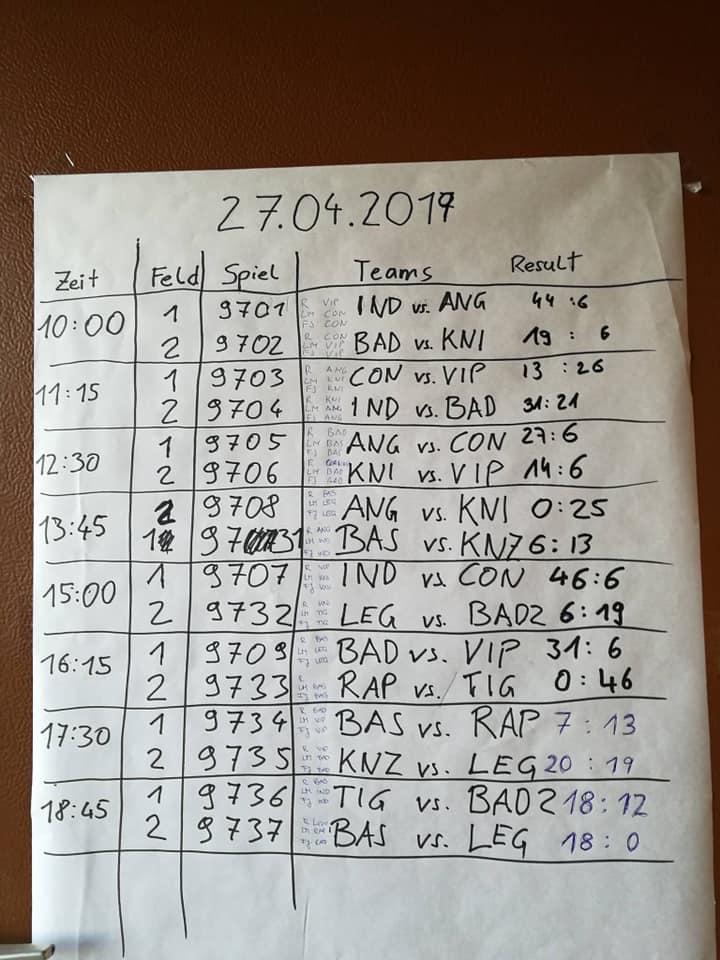 27.04.2019
Zeit Feld Spiel Teams Result
10:00 1 9701 R VIP LM CON FJ CON IND vs. ANG 44:6
2 9702 R CON LM VIP FJ VIP BAD vs. KNI 19:6
11:15 1 9703 R ANG LM KNI FJ KNI CON vs. VIP 13:26
2 9704 R KNI LM ANG FJ ANG IND vs. BAD 31:21
12:30 1 9705 R BAD LM BAS FJ BAS ANG vs. CON 27:6
2 9706 R LM BAD FJ BAD KNI vs. VIP 14:6
13:45 2 9708 R BAS LM LEG FJ LEG ANG vs. KNI 0:25
1 9731 R ANG LM FJ BAS vs. KNZ 6:13
15:00 1 9707 R LM FJ IND vs. CON 46:6
2 9732 R LM TIG FJ TIG LEG vs. BAD2 6:19
16:15 1 9709 R BAS LM LEG FJ LEG BAD vs. VIP 31:6
2 9733 R LM BAS FJ BAS RAP vs. TIG 0:46
17:30 1 9734 R LM VIP FJ VIP BAS vs. RAP 7:13
2 9735 R LM FJ KNZ vs. LEG 20:19
18:45 1 9736 R LM IND FJ IND TIG vs. BAD2 18:12
2 9737 R LM FJ BAS vs. LEG 18:0